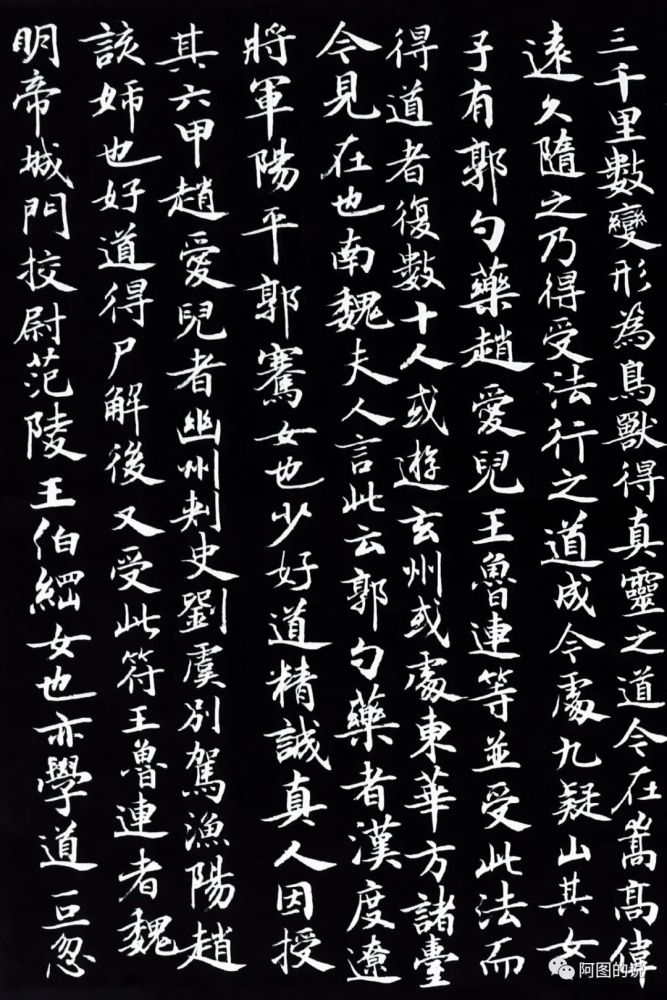 三千里數變形為鳥獸得真靈之道今在嵩高偉
遠久隨之乃得受法行之道成今處九疑山其女
子有郭勺藥趙愛兒王魯連等並受此法而
得道者復數十人或遊玄州或處東華方諸臺
今見在也南魏夫人言此云郭勺藥者漢度遼
將軍陽平郭騫女也少好道精誠真人因授
其六甲趙愛兒者幽州刺史劉虞別駕漁陽趙
該姊也好道得尸解後又受此符王魯連者魏
明帝城門挍尉范陵王伯綱女也亦學道一旦忽
阿图的说